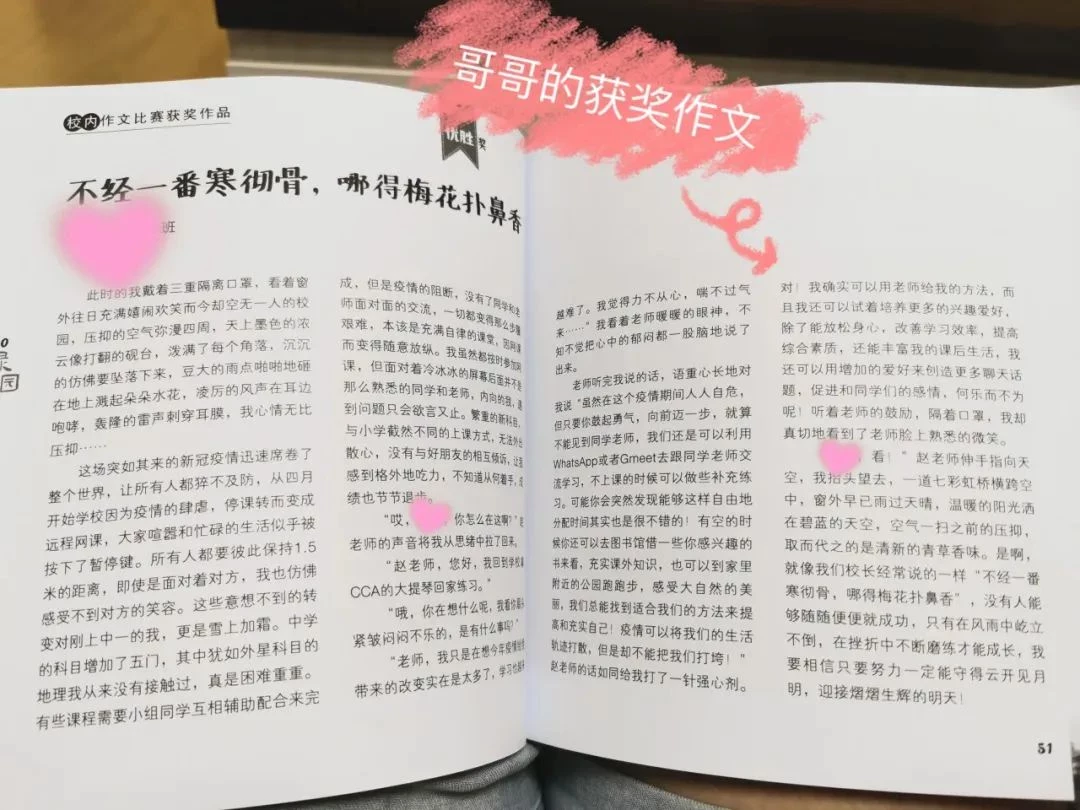 哥哥的获奖作文
校内作文比赛获奖作品
优胜奖
不经一番寒彻骨，哪得梅花扑鼻香
班
此时的我戴着三重隔离口罩，看着窗
外往日充满嬉闹欢笑而今却空无一人的校
园，压抑的空气弥漫四周，天上墨色的浓
云像打翻的砚台，泼满了每个角落，沉沉
的仿佛要坠落下来，豆大的雨点啪啪地砸
在地上溅起朵朵水花，凌厉的风声在耳边
咆哮，轰隆的雷声刺穿耳膜，我心情无比
压抑……
这场突如其来的新冠疫情迅速席卷了
整个世界，让所有人都猝不及防，从四月
开始学校因为疫情的肆虐，停课转而变成
远程网课，大家喧嚣和忙碌的生活似乎被
按下了暂停键。所有人都要彼此保持1.5
米的距离，即使是面对着对方，我也仿佛
感受不到对方的笑容。这些意想不到的转
变对刚上中一的我，更是雪上加霜。中学
的科目增加了五门，其中犹如外星科目的
地理我从来没有接触过，真是困难重重。
有些课程需要小组同学互相辅助配合来完
成，但是疫情的阻断，没有了同学和老
师面对面的交流，一切都变得那么步履
艰难，本该是充满自律的课堂，因网课
而变得随意放纵。我虽然都按时参加网
课，但面对着冷冰冰的屏幕后面并不是
那么熟悉的同学和老师，内向的我，遇
到问题只会欲言又止。繁重的新科目，
与小学截然不同的上课方式，无法外出
散心，没有与好朋友的相互倾诉，让我
感到格外地吃力，不知道从何着手，成
绩也节节退步。
“哎，你怎么在这啊？”赵
老师的声音将我从思绪中拉了回来。
“赵老师，您好，我回到学校拿
CCA的大提琴回家练习。”
“哦，你在想什么呢，我看你眉头
紧皱闷闷不乐的，是有什么事吗？”
“老师，我只是在想今年疫情给我
带来的改变实在是太多了，学习也
越难了。我觉得力不从心，喘不过气
来……”我看着老师暖暖的眼神，不
知不觉把心中的郁闷都一股脑地说了
出来。
老师听完我说的话，语重心长地对
我说“虽然在这个疫情期间人人自危，
但只要你鼓起勇气，向前迈一步，就算
不能见到同学老师，我们还是可以利用
WhatsApp或者Gmeet去跟同学老师交
流学习，不上课的时候可以做些补充练
习。可能你会突然发现能够这样自由地
分配时间其实也是很不错的！有空的时
候你还可以去图书馆借一些你感兴趣的
书来看，充实课外知识，也可以到家里
附近的公园跑跑步，感受大自然的美
丽，我们总能找到适合我们的方法来提
高和充实自己！疫情可以将我们的生活
轨迹打散，但是却不能把我们打垮！”
赵老师的话如同给我打了一针强心剂。
对！我确实可以用老师给我的方法，而
且我还可以试着培养更多的兴趣爱好，
除了能放松身心，改善学习效率，提高
综合素质，还能丰富我的课后生活，我
还可以用增加的爱好来创造更多聊天话
题，促进和同学们的感情，何乐而不为
呢！听着老师的鼓励，隔着口罩，我却
真切地看到了老师脸上熟悉的微笑。
看！”赵老师伸手指向天
空，我抬头望去，一道七彩虹桥横跨空
中，窗外早已雨过天晴，温暖的阳光洒
在碧蓝的天空，空气一扫之前的压抑，
取而代之的是清新的青草香味。是啊，
就像我们校长经常说的一样“不经一番
寒彻骨，哪得梅花扑鼻香”，没有人能
够随随便便就成功，只有在风雨中屹立
不倒，在挫折中不断磨练才能成长，我
要相信只要努力一定能守得云开见月
明，迎接熠熠生辉的明天！
51